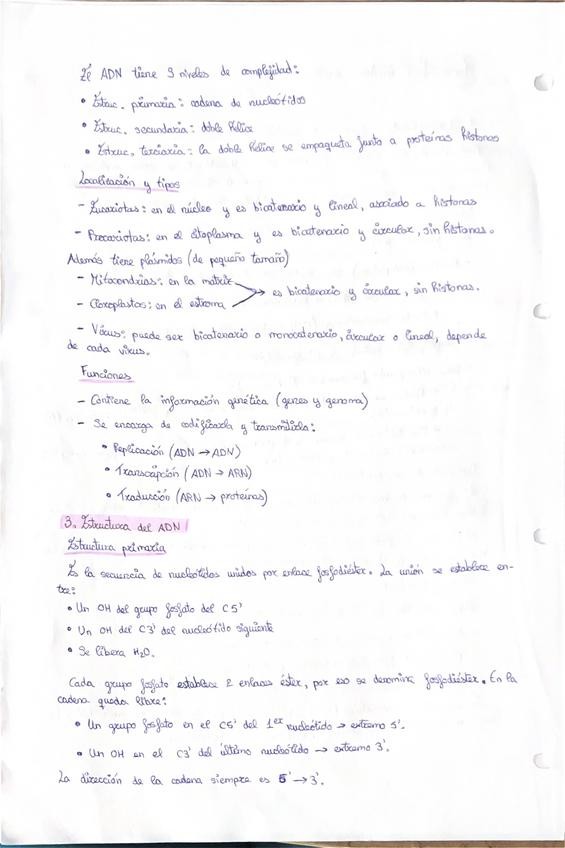 El ADN tiene 3 niveles de complejidad:
• Estruc. primaria: cadena de nucleótidos
• Estruc. secundaria: doble hélice
• Estruc. terciaria: la doble hélice se empaqueta junto a proteínas histonas
Localización y tipos
- Eucariotas: en el núcleo y es bicatenario y lineal, asociado a histonas
- Procariotas: en el citoplasma y es bicatenario y circular, sin histonas.
Además tiene plásmidos (de pequeño tamaño)
- Mitocondrias: en la matriz
→ es bicatenario y circular, sin histonas.
- Cloroplastos: en el estroma
- Virus: puede ser bicatenario o monocatenario, circular o lineal, depende
de cada virus.
Funciones
- Contiene la información genética (genes y genoma)
- Se encarga de codificarla y transmitirla:
• Replicación (ADN → ADN)
• Transcripción (ADN → ARN)
• Traducción (ARN → proteínas)
3. Estructura del ADN
Estructura primaria
Es la secuencia de nucleótidos unidos por enlace fosfodiéster. La unión se establece en-
tre:
• Un OH del grupo fosfato del C5'
• Un OH del C3' del nucleótido siguiente
• Se libera H₂O.
Cada grupo fosfato establece 2 enlaces éster, por eso se denomina fosfodiéster. En la
cadena queda libre:
• Un grupo fosfato en el C5' del 1er nucleótido → extremo 5'.
• Un OH en el C3' del último nucleótido → extremo 3'.
La dirección de la cadena siempre es 5' → 3'.